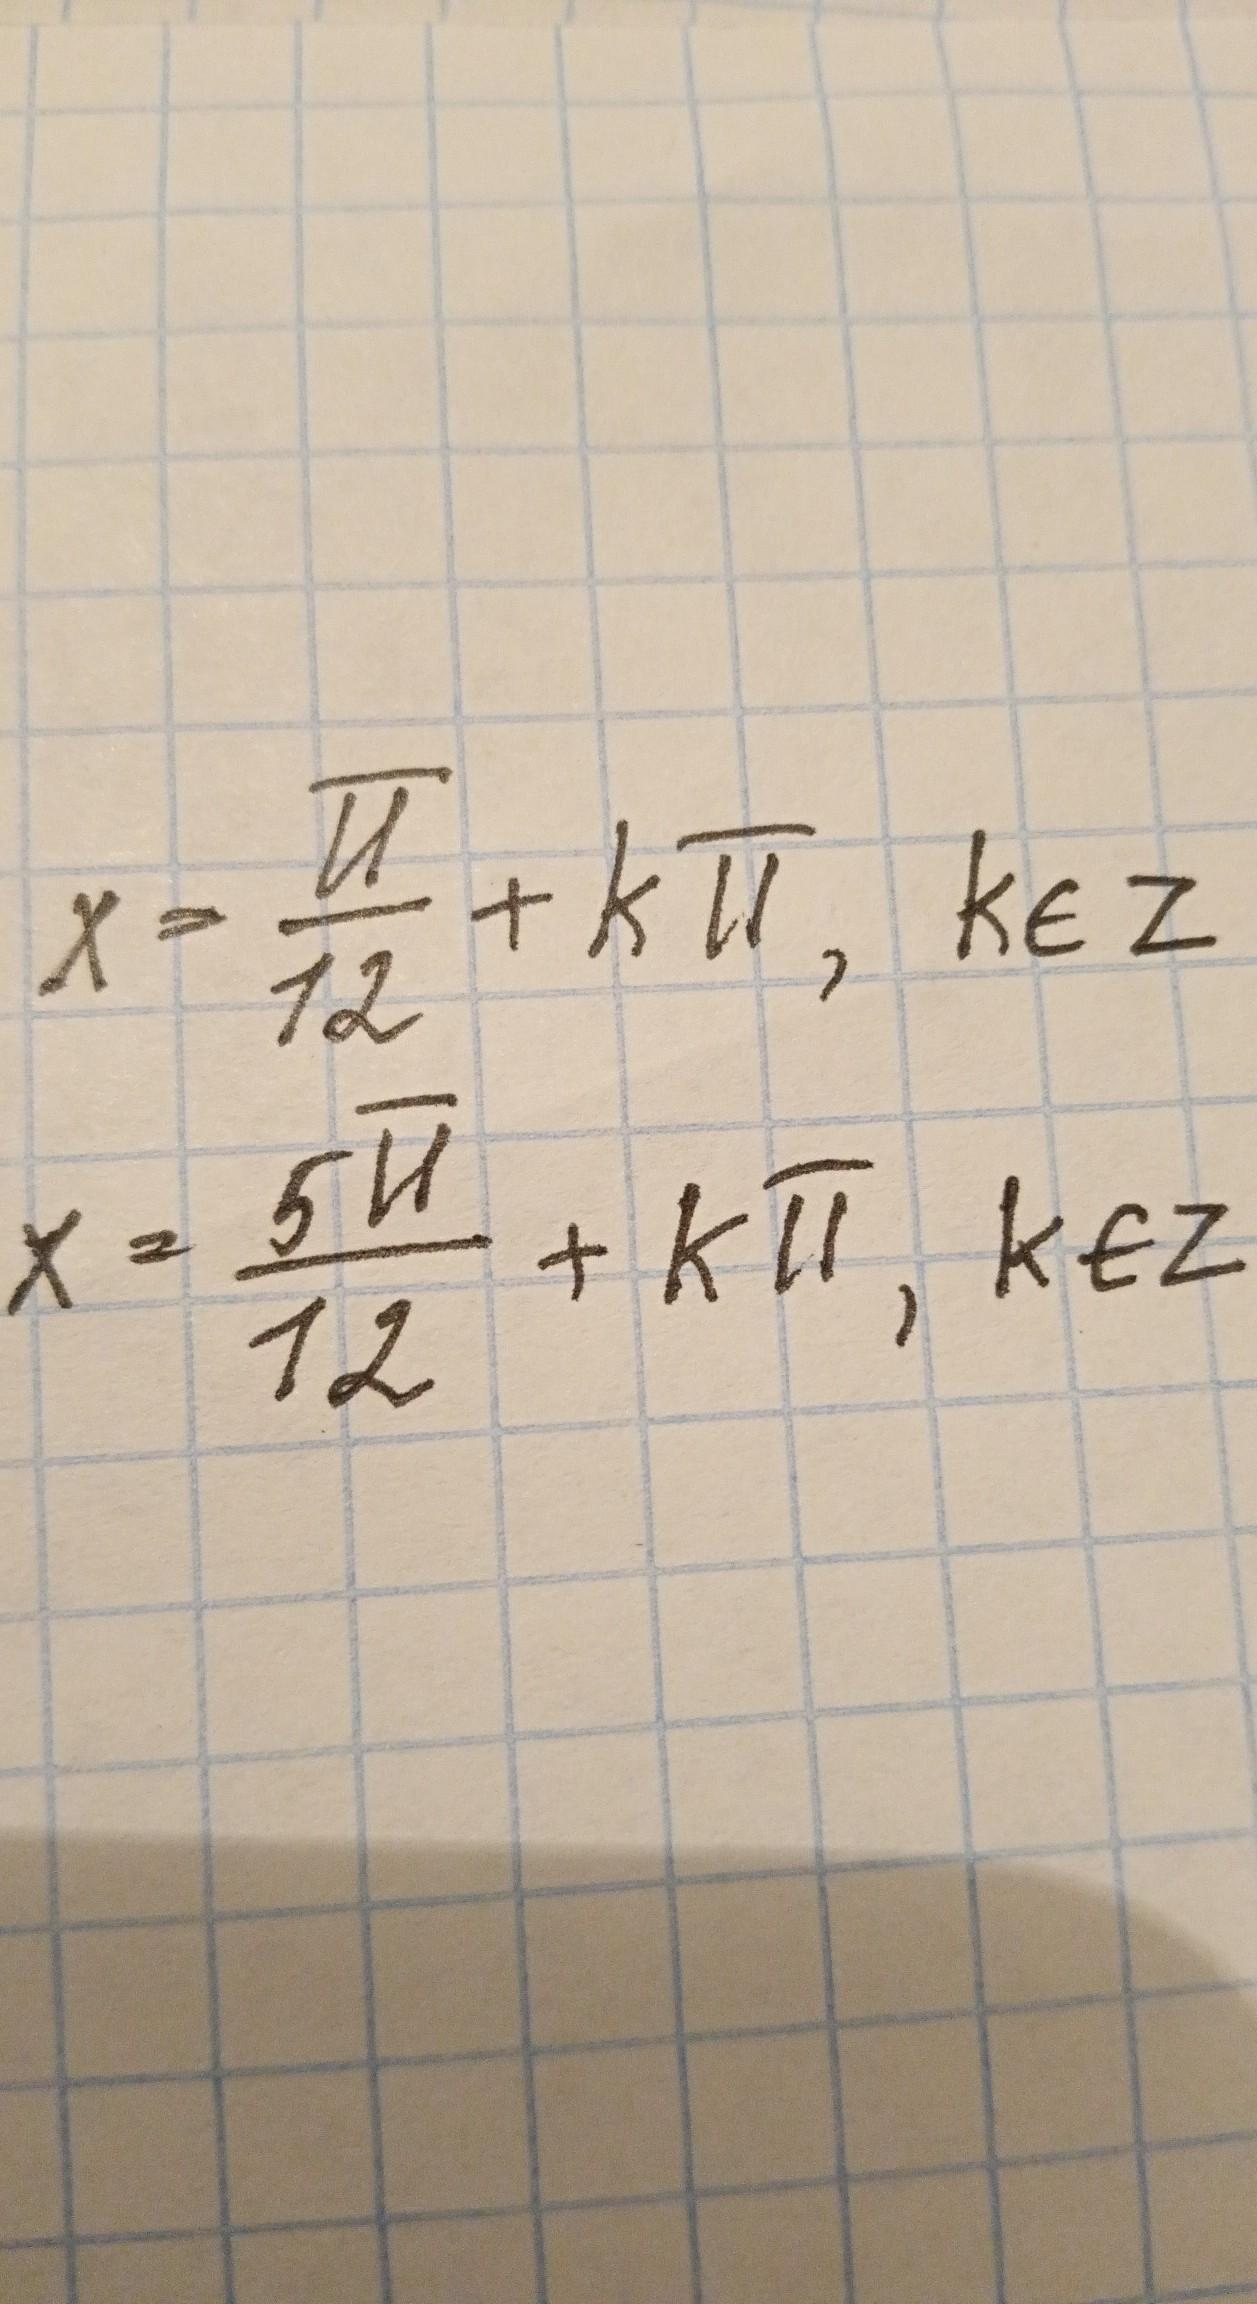 x = π/12 + kπ, k∈Z
x = 5π/12 + kπ, k∈Z